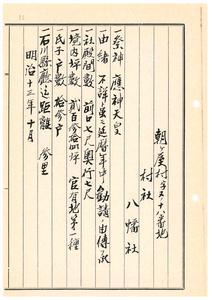 朝ヶ屋村字ヌ十八番地
村社
八幡社
一祭神 應神天皇
一由緒 不詳ト雖モ延暦年中勧請ノ由傳承
一社殿間數 前口七尺奥行七尺
一境内坪數 貳百参拾四坪 官有地第一種
一氏子戸數 拾参戸
一石川縣廳迄距離 参里
明治十三年十月